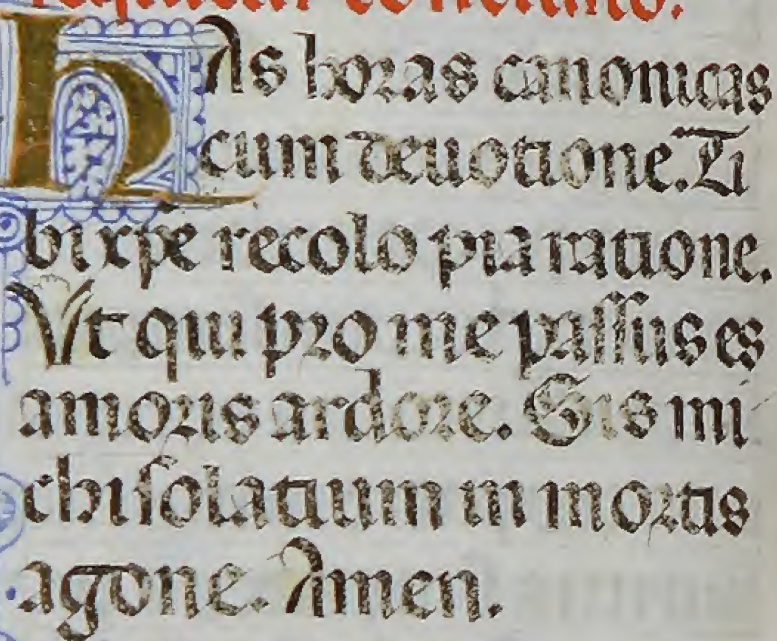 has horas canonicas
cum deuotione. Ti
bi xpe recolo pia ratione.
Vt qui pro me passus es
amoris ardore. Sis mi
chi solatium in mortis
agone. Amen.